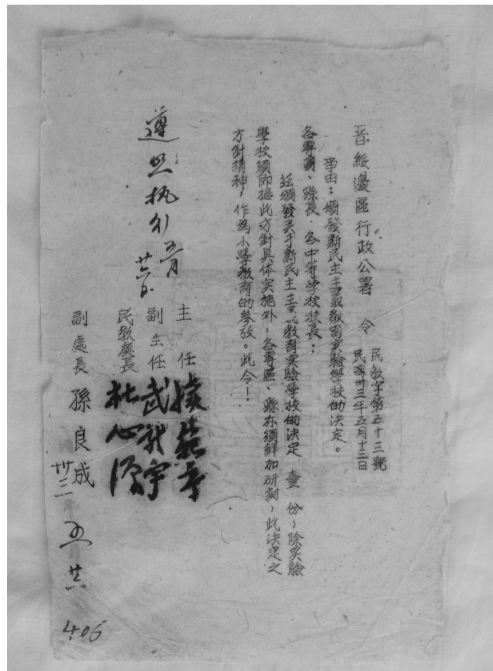 晋綏邊區行政公署　令
民教字第五十三號
民國卅三年五月十三日
事由：頒發新民主主義教育實驗學校的決定。
各專員、縣長、各中等學校校長：
茲頒發关于新民主主義教育實驗學校的決定壹份，除实驗
學校須即据此方針具体实施外，各專區、縣亦須詳加研討，此決定之
方針精神，作為小學教育的參攷。此令！
主任
副主任　武新宇
民教處長　杜心源
副處長　孫良成
遵照执行
五月
廿六日
卅三
五
406